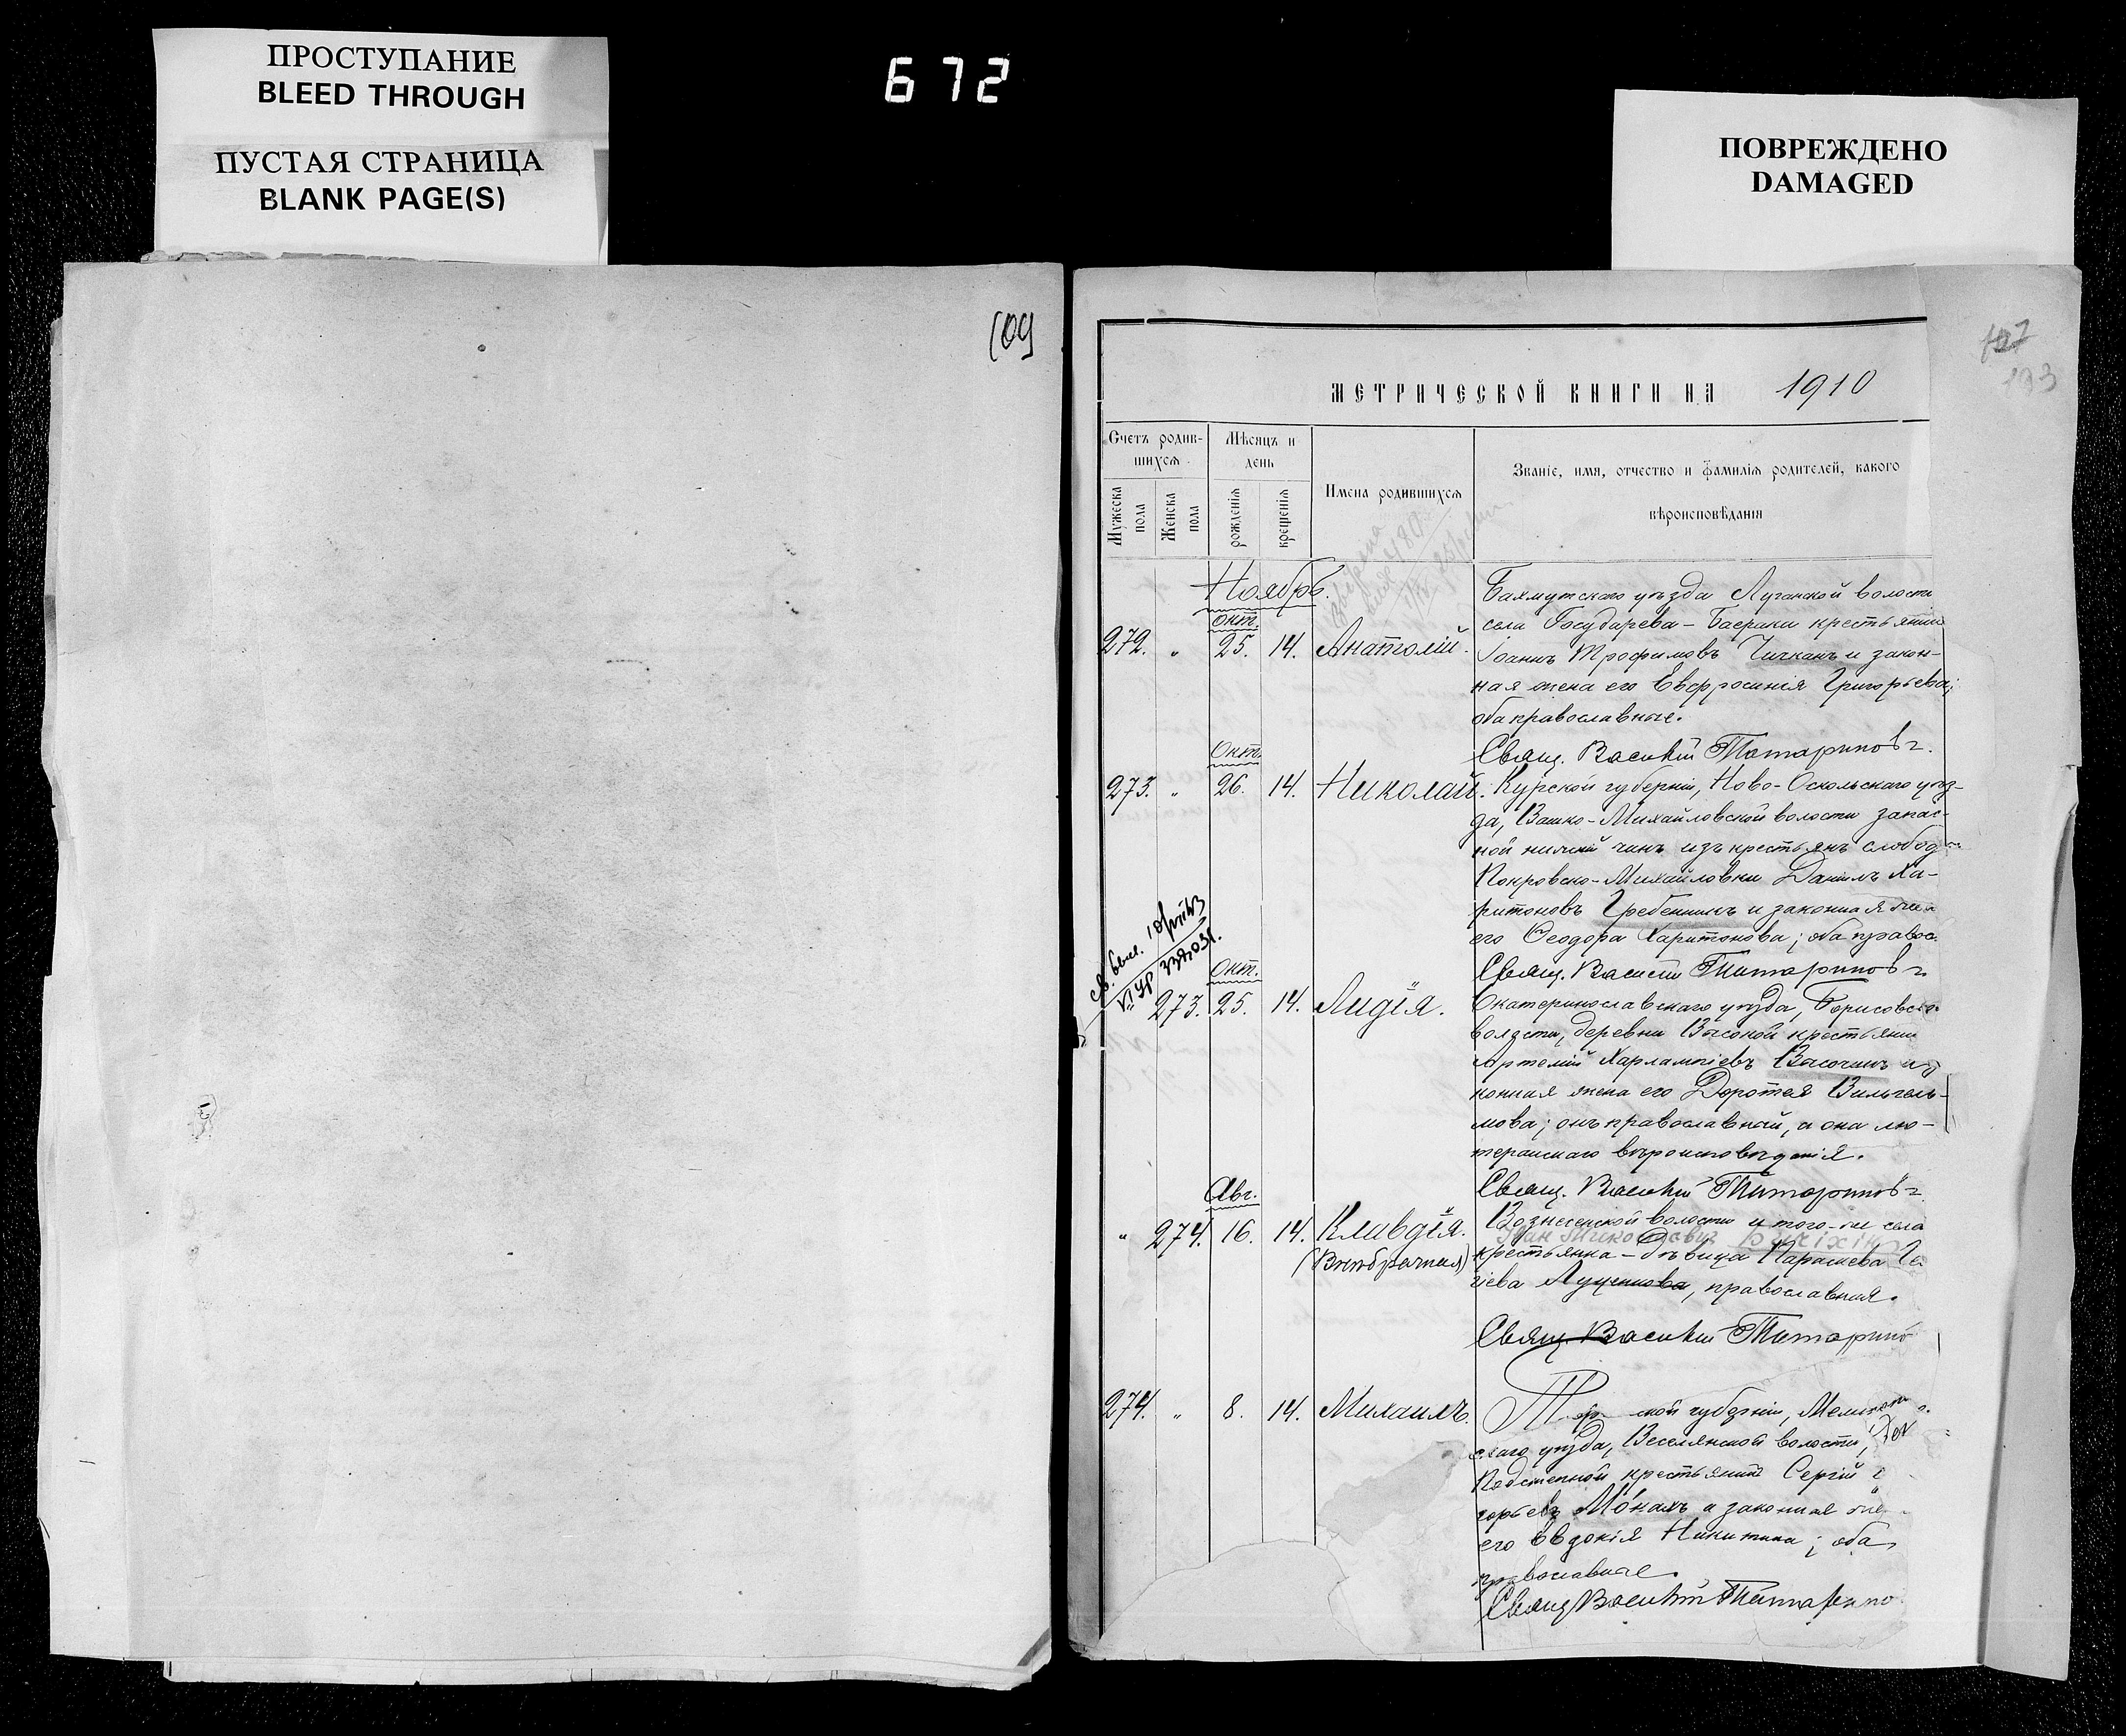 ПРОСТУПАНИЕ
BLEED THROUGH
ПУСТАЯ СТРАНИЦА
BLANK PAGE(S)
672
ПОВРЕЖДЕНО
DAMAGED
109
193
МЕТРИЧЕСКОЙ КНИГИ НА 1910
Счетъ родившихся
Мѣсяцъ и день
Имена родившихся
Званіе, имя, отчество и фамилія родителей, какого вѣроисповѣданія
Мужеска пола
Женска пола
рожденія
крещенія
Ноябрь.
Окт.
272. " 25. 14. Анатолій.
Бахмутскаго уѣзда Луганской волости
села Государева-Баераки крестьянинъ
Іоаннъ Трофимовъ Чичканъ и закон-
ная жена его Евфросинія Григорьева;
оба православные.
Свящ. Василій Титариновъ.
Окт.
273. " 26. 14. Николай.
Курской губерніи, Ново-Оскольскаго уѣз-
да, Михайловской волости запас-
ной нижній чинъ изъ крестьянъ слободы
Покровско-Михайловки Даніилъ Ха-
ритоновъ Гребенникъ и законная жена
его Ѳеодора Харитонова; оба правос.
Свящ. Василій Титариновъ
Окт.
273. 25. 14. Лидія.
Екатеринославскаго уѣзда, Борисовской
волости, деревни Высокой крестьянинъ
Артемій Харлампіевъ Височинъ и за
конная жена его Доротея Вильгель-
мова; онъ православный, а она лю-
теранскаго вѣроисповѣданія.
Свящ. Василій Титариновъ
Авг.
" 274. 16. 14. Клавдія.
(Внѣбрачная)
Вознесенской волости и того-же села
крестьянка-дѣвица Параскева Ге
гіева Луценкова, православная.
Свящ. Василій Титарино
274. " 8. 14. Михаилъ.
губерніи,
скаго уѣзда, Веселянской волости,
Подстепной крестьянинъ Сергій
горьевъ Моналъ и законная же
его Евдокія Никитина; оба
православные.
Свящ Василій Титарино